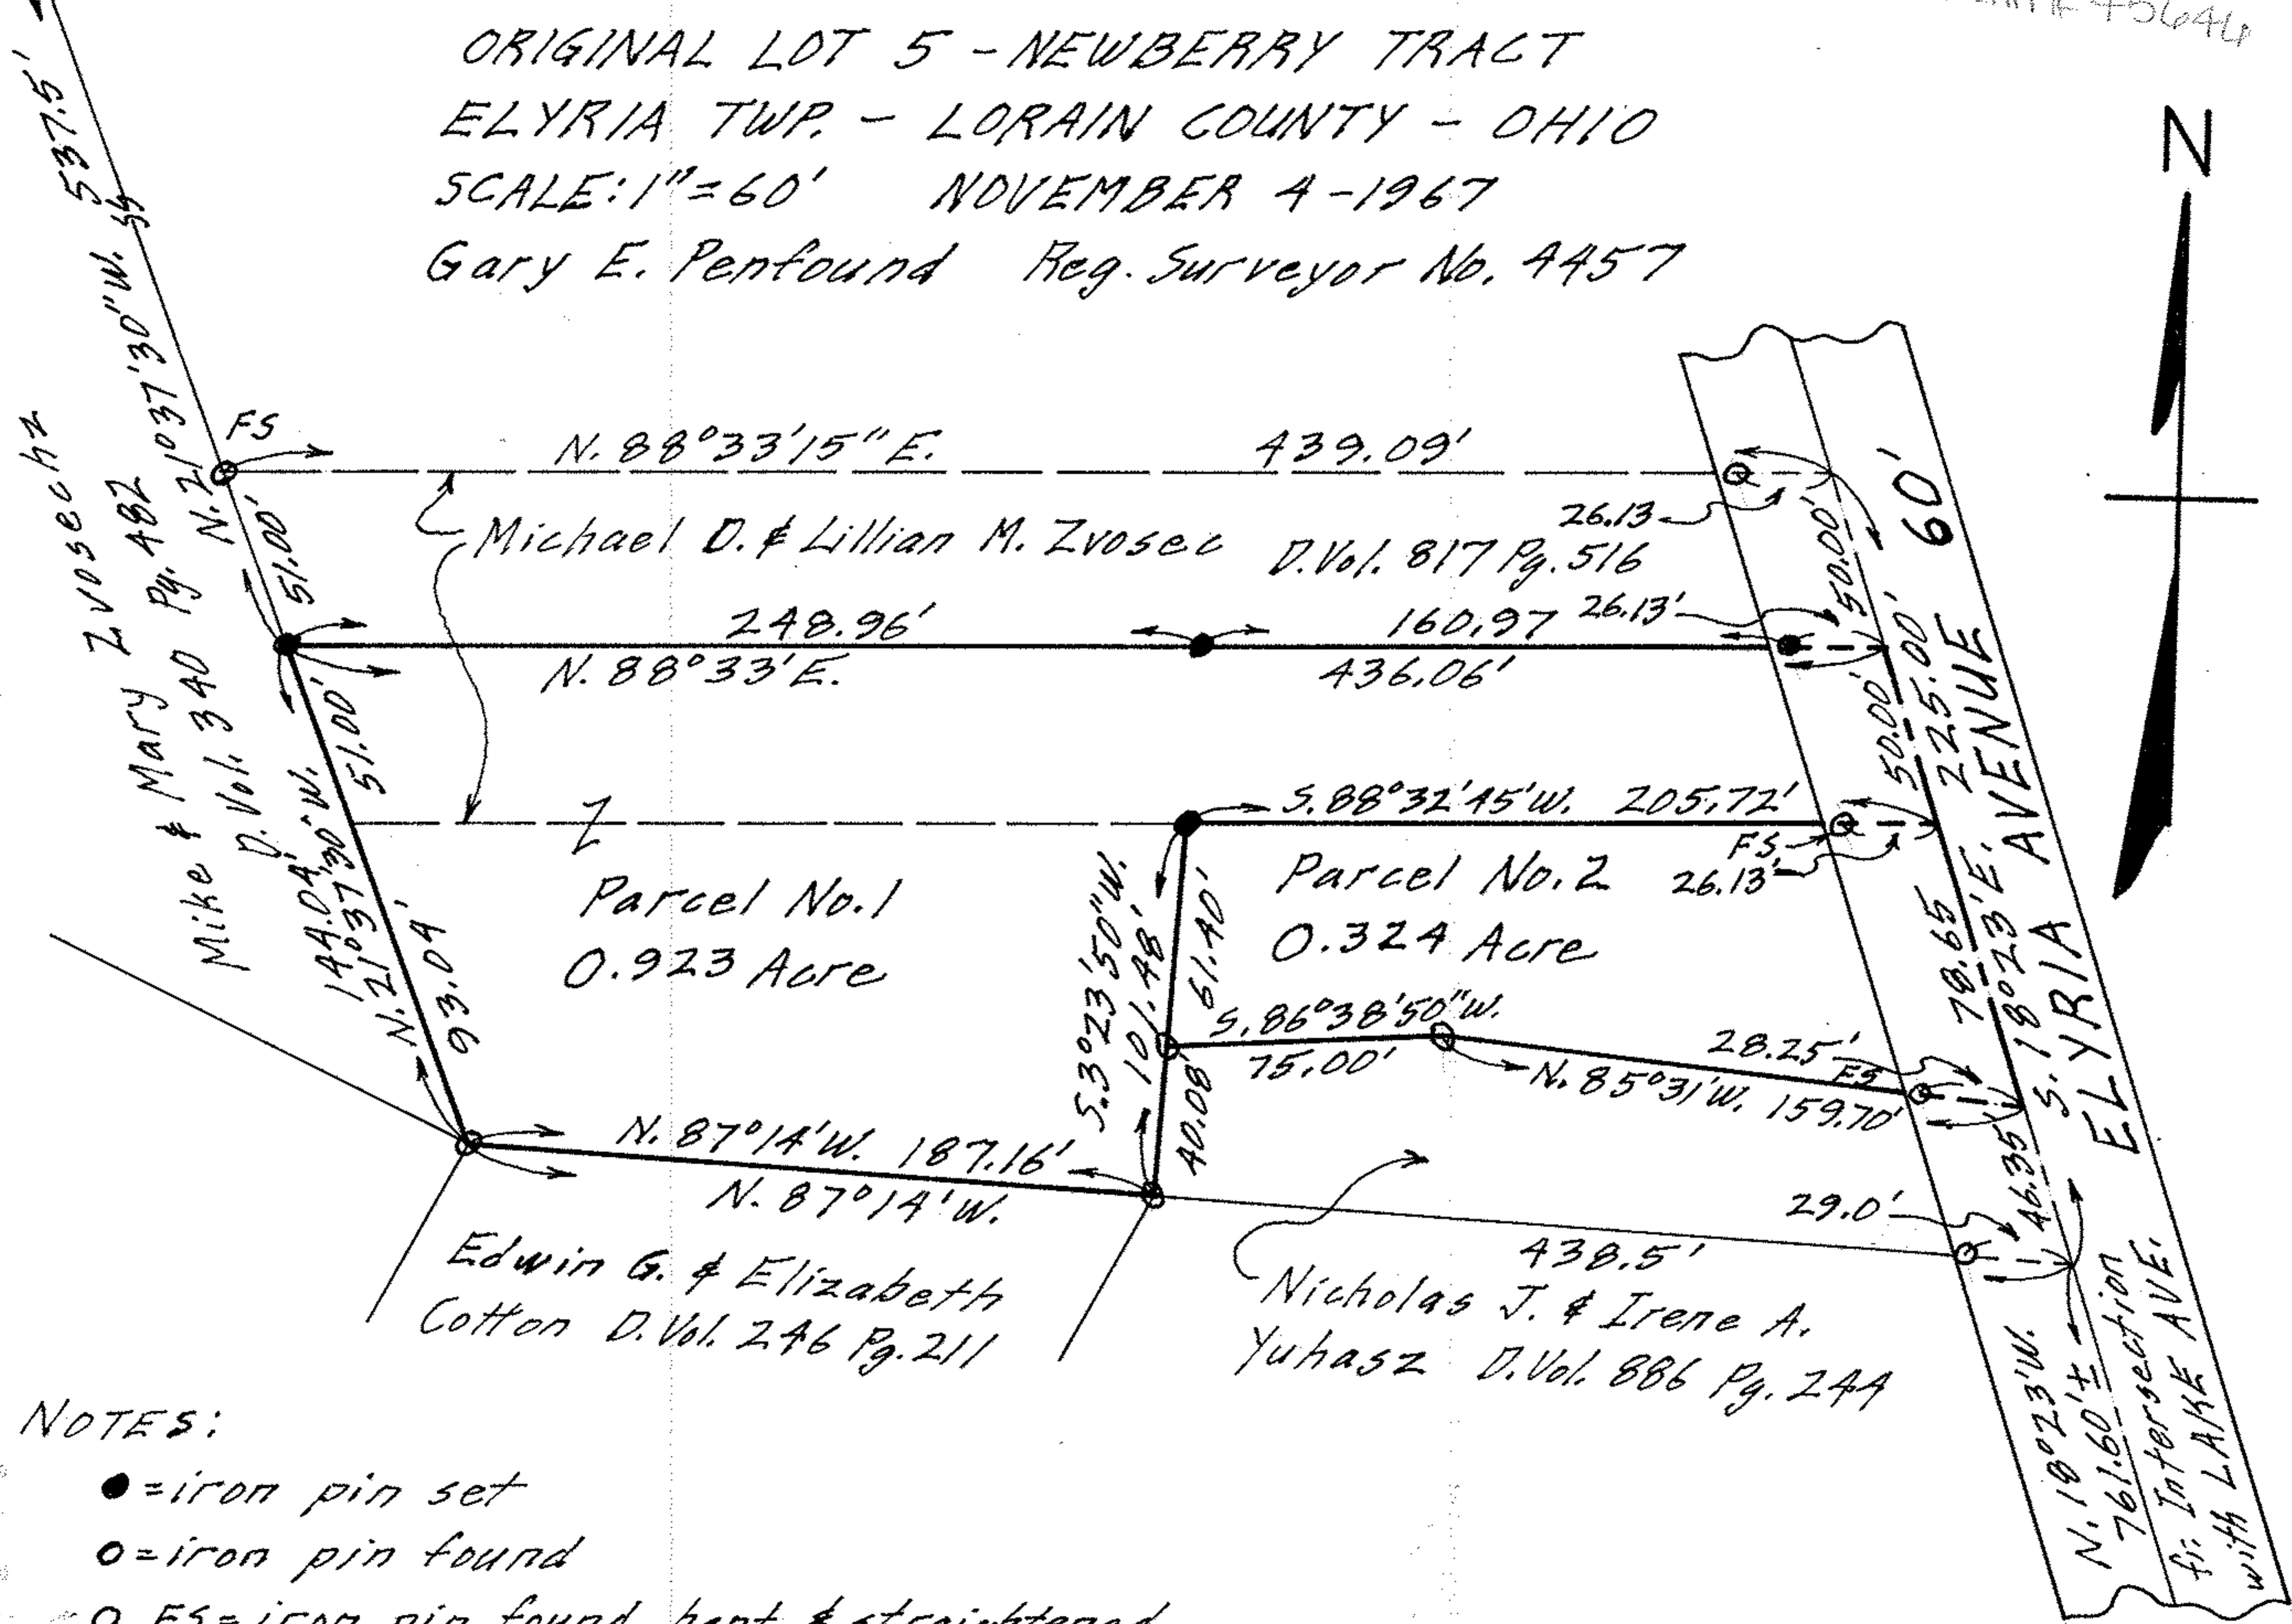 ORIGINAL LOT 5 - NEWBERRY TRACT
ELYRIA TWP. - LORAIN COUNTY - OHIO
SCALE: 1"=60' NOVEMBER 4-1967
Gary E. Penfound Reg. Surveyor No. 4457
N
537.5'
N.21°37'30"W.
Mike & Mary Zvosechz
D.Vol. 340 Pg. 482
FS
N. 88°33'15"E. 439.09'
26.13
50.00'
60'
51.00'
Michael D. & Lillian M. Zvosec D.Vol. 817 Pg. 516
248.96' 160.97 26.13'
N. 88°33'E. 436.06'
51.00'
50.00'
225.00'
S. 18°23'E.
ELYRIA AVENUE
S.88°32'45"W. 205.72'
FS
26.13'
Parcel No.1
0.923 Acre
Parcel No.2
0.324 Acre
144.04'
N.21°37'30"W.
93.04'
S.3°23'50"W.
101.48'
61.40'
40.08'
78.65
S.86°38'50"W.
75.00'
28.25'
FS
N. 85°31'W. 159.70'
46.35
N. 87°14'W. 187.16'
N. 87°14'W.
29.0'
438.5'
Edwin G. & Elizabeth
Cotton D.Vol. 246 Pg.211
Nicholas J. & Irene A.
Yuhasz D.Vol. 886 Pg. 244
N. 18°23'W.
761.60'±
fr. Intersection
with LAKE AVE.
NOTES:
●=iron pin set
o=iron pin found
o FS=iron pin found bent & straightened